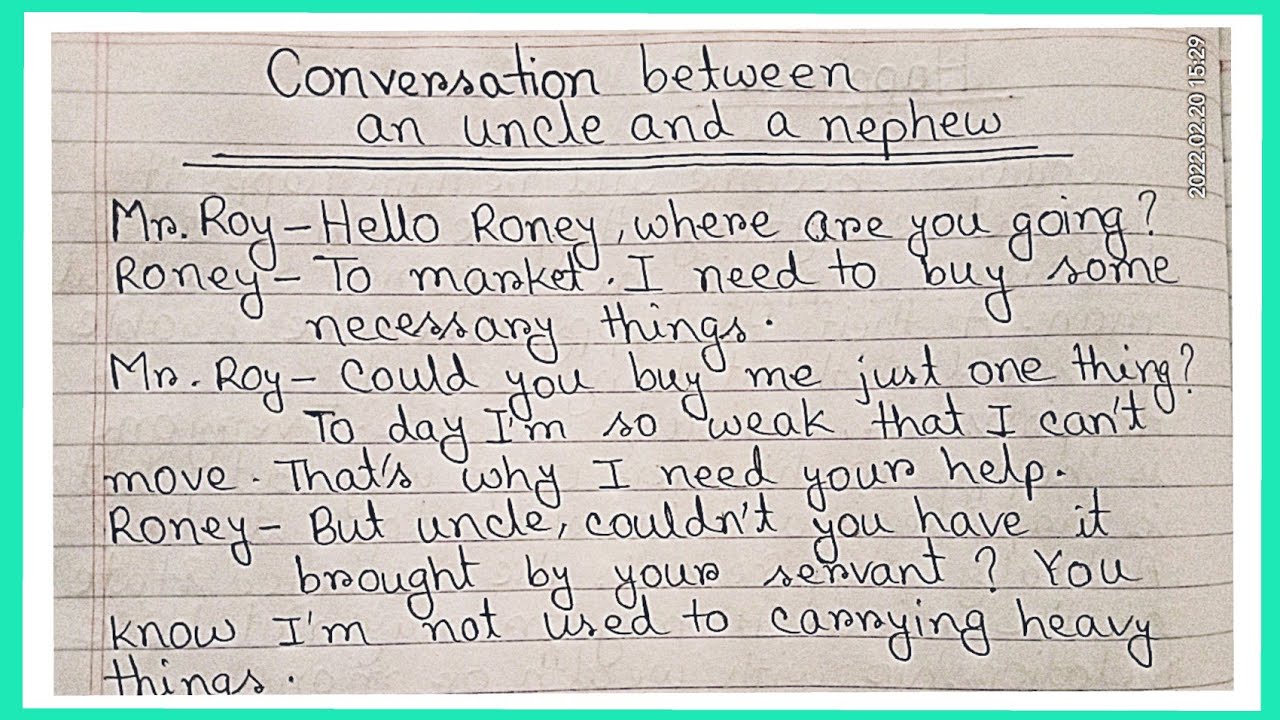 Conversation between
an uncle and a nephew
2022.02.20 15:29
Mr. Roy - Hello Roney, where are you going?
Roney - To market. I need to buy some
necessary things.
Mr. Roy - Could you buy me just one thing?
To day I'm so weak that I can't
move. That's why I need your help.
Roney - But uncle, couldn't you have it
brought by your servant? You
know I'm not used to carrying heavy
things.